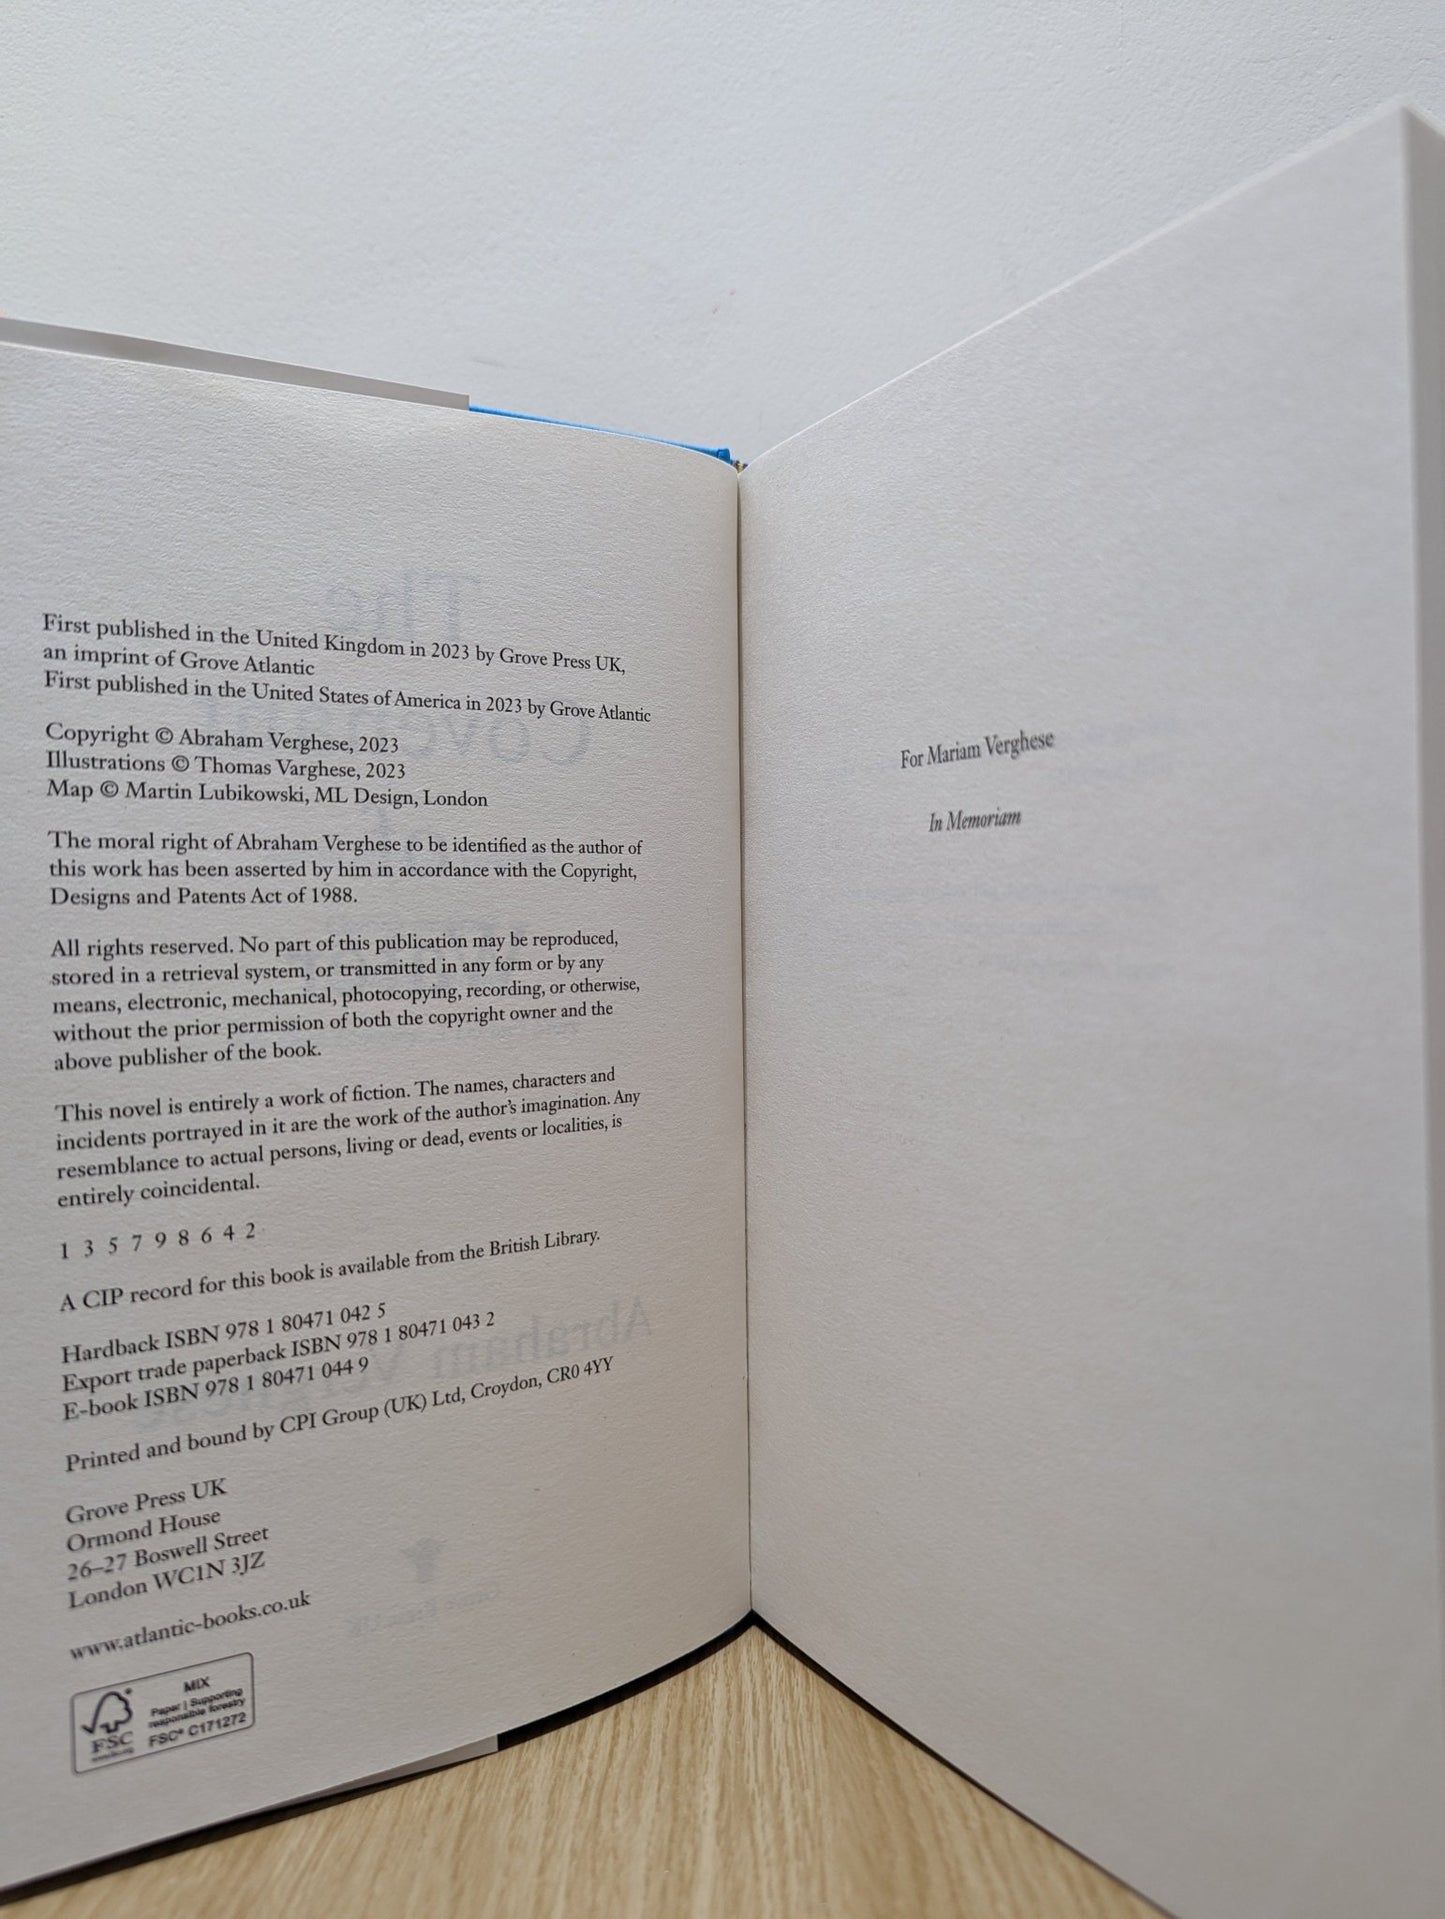 First published in the United Kingdom in 2023 by Grove Press UK,
an imprint of Grove Atlantic
First published in the United States of America in 2023 by Grove Atlantic
Copyright © Abraham Verghese, 2023
Illustrations © Thomas Varghese, 2023
Map © Martin Lubikowski, ML Design, London
The moral right of Abraham Verghese to be identified as the author of
this work has been asserted by him in accordance with the Copyright,
Designs and Patents Act of 1988.
All rights reserved. No part of this publication may be reproduced,
stored in a retrieval system, or transmitted in any form or by any
means, electronic, mechanical, photocopying, recording, or otherwise,
without the prior permission of both the copyright owner and the
above publisher of the book.
This novel is entirely a work of fiction. The names, characters and
incidents portrayed in it are the work of the author's imagination. Any
resemblance to actual persons, living or dead, events or localities, is
entirely coincidental.
1 3 5 7 9 8 6 4 2
A CIP record for this book is available from the British Library.
Hardback ISBN 978 1 80471 042 5
Export trade paperback ISBN 978 1 80471 043 2
E-book ISBN 978 1 80471 044 9
Printed and bound by CPI Group (UK) Ltd, Croydon, CR0 4YY
Grove Press UK
Ormond House
26–27 Boswell Street
London WC1N 3JZ
www.atlantic-books.co.uk
MIX
Paper | Supporting
responsible forestry
FSC® C171272
FSC
For Mariam Verghese
In Memoriam